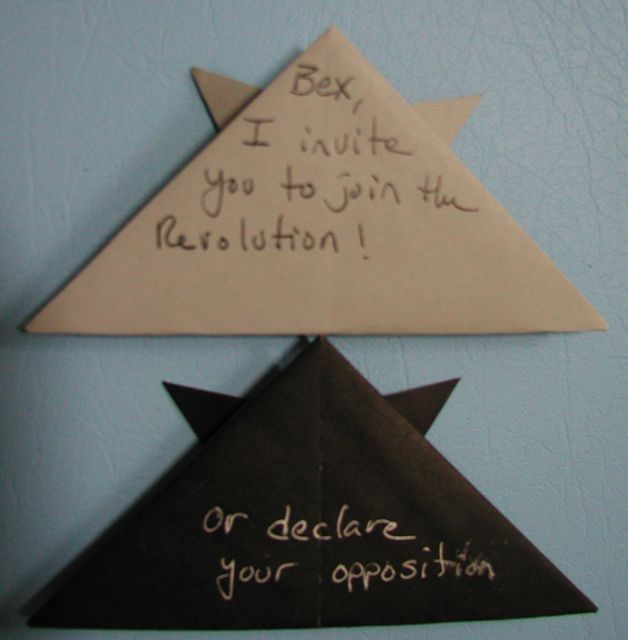 Bex,
I invite
you to join the
Revolution!
Or declare
your opposition